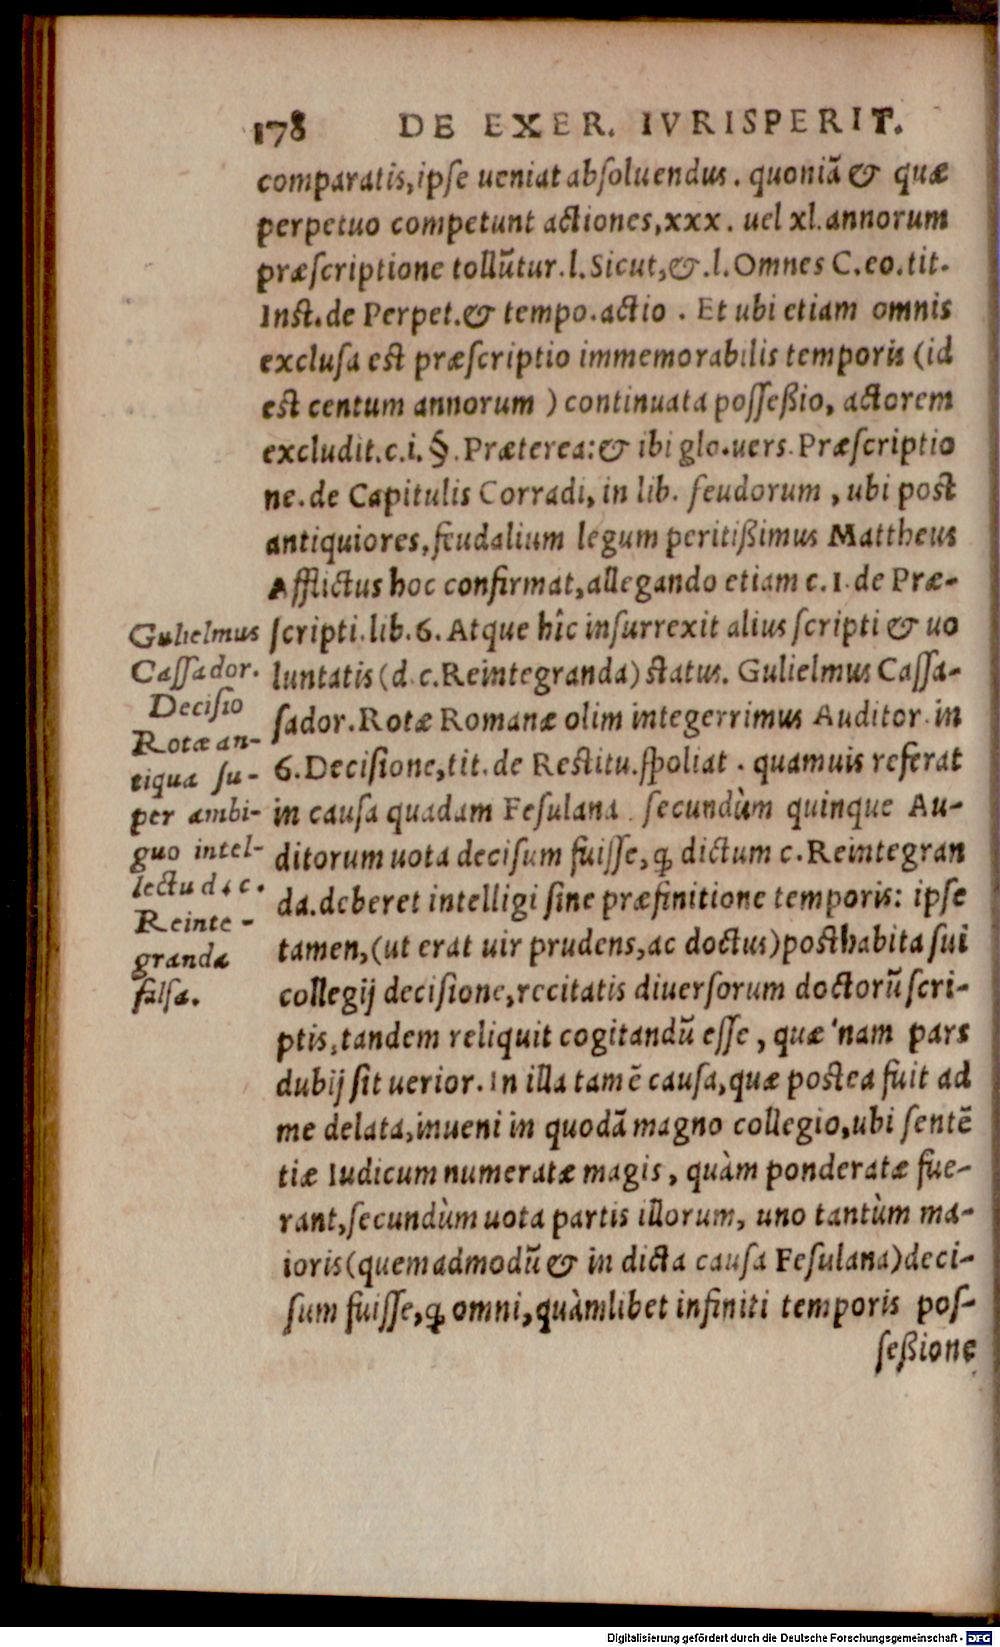 178 DE EXER. IVRISPERIT.
comparatis, ipse ueniat absoluendus. quoniã & quæ
perpetuo competunt actiones, xxx. uel xl. annorum
præscriptione tollũtur. l. Sicut, &. l. Omnes C. eo. tit.
Inst. de Perpet. & tempo. actio. Et ubi etiam omnis
exclusa est præscriptio immemorabilis temporis (id
est centum annorum) continuata posseßio, actorem
excludit. c. i. §. Præterea: & ibi glo. uers. Præscriptio
ne. de Capitulis Corradi, in lib. feudorum, ubi post
antiquiores, feudalium legum peritißimus Mattheus
Afflictus hoc confirmat, allegando etiam c. 1. de Præ-
scripti. lib. 6. Atque hîc insurrexit alius scripti & uo
luntatis (d. c. Reintegranda) status. Gulielmus Cassa-
sador. Rotæ Romanæ olim integerrimus Auditor. in
6. Decisione, tit. de Restitu. spoliat. quamuis referat
in causa quadam Fesulana. secundùm quinque Au-
ditorum uota decisum fuisse, ꝙ dictum c. Reintegran
da. deberet intelligi sine præfinitione temporis: ipse
tamen, (ut erat uir prudens, ac doctus) posthabita sui
collegij decisione, recitatis diuersorum doctorũ scri-
ptis, tandem reliquit cogitandũ esse, quæ'nam pars
dubij sit uerior. In illa tamẽ causa, quæ postea fuit ad
me delata, inueni in quodã magno collegio, ubi sentẽ
tiæ Iudicum numeratæ magis, quàm ponderatæ fue-
rant, secundùm uota partis illorum, uno tantùm ma-
ioris (quemadmodũ & in dicta causa Fesulana) deci-
sum fuisse, ꝙ omni, quàmlibet infiniti temporis pos-
seßione
Gulielmus
Cassador.
Decisio
Rotæ an-
tiqua su-
per ambi-
guo intel-
lectu d. c.
Reinte-
granda
falsa.
Digitalisierung gefördert durch die Deutsche Forschungsgemeinschaft - DFG